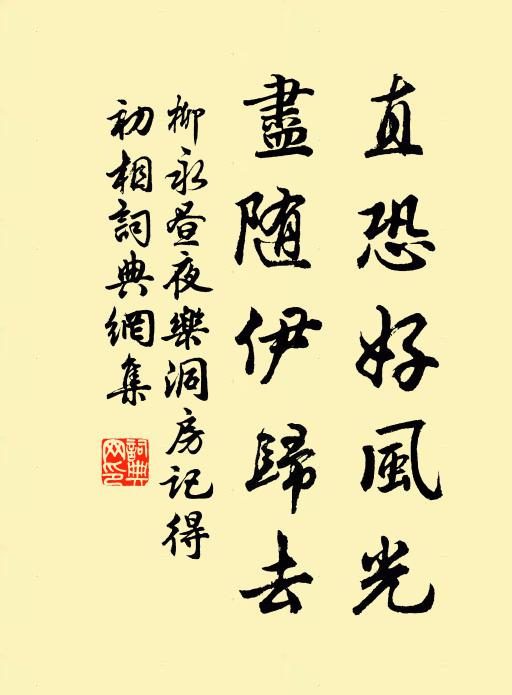 直恐好風光
盡随伊歸去
柳永昼夜樂洞房記得
初相詞典網集
詞典
网印